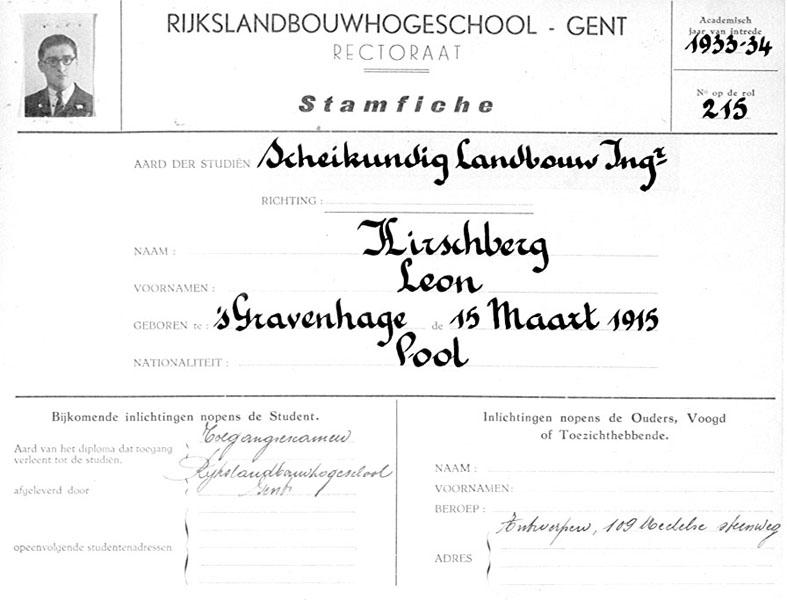 RIJKSLANDBOUWHOGESCHOOL - GENT
RECTORAAT
Stamfiche
Academisch
jaar van intrede
1933-34
Nº op de rol
215
AARD DER STUDIËN Scheikundig Landbouw Ingr
RICHTING :
NAAM : Hirschberg
VOORNAMEN : Leon
GEBOREN te : 's Gravenhage de 15 Maart 1915
NATIONALITEIT : Pool
Bijkomende inlichtingen nopens de Student.
Aard van het diploma dat toegang
verleent tot de studiën.
Toegangsexamen
Rijkslandbouwhogeschool
Gent
afgeleverd door
opeenvolgende studentenadressen
Inlichtingen nopens de Ouders, Voogd
of Toezichthebbende.
NAAM :
VOORNAMEN:
BEROEP :
ADRES Antwerpen, 109 steenweg